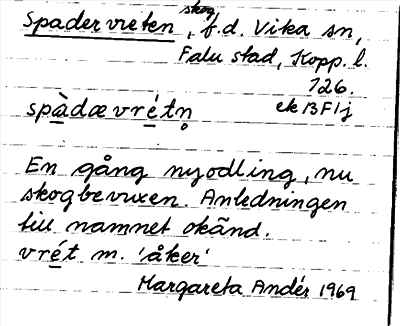 Spadervreten, skog, f.d. Vika sn,
Falu stad, Kopp. l.
126.
spàdævrétn̥ ek 13 F 1 j
En gång nyodling, nu
skogbevuxen. Anledningen
till namnet okänd.
vrét m. 'åker'
Margareta Andér 1969